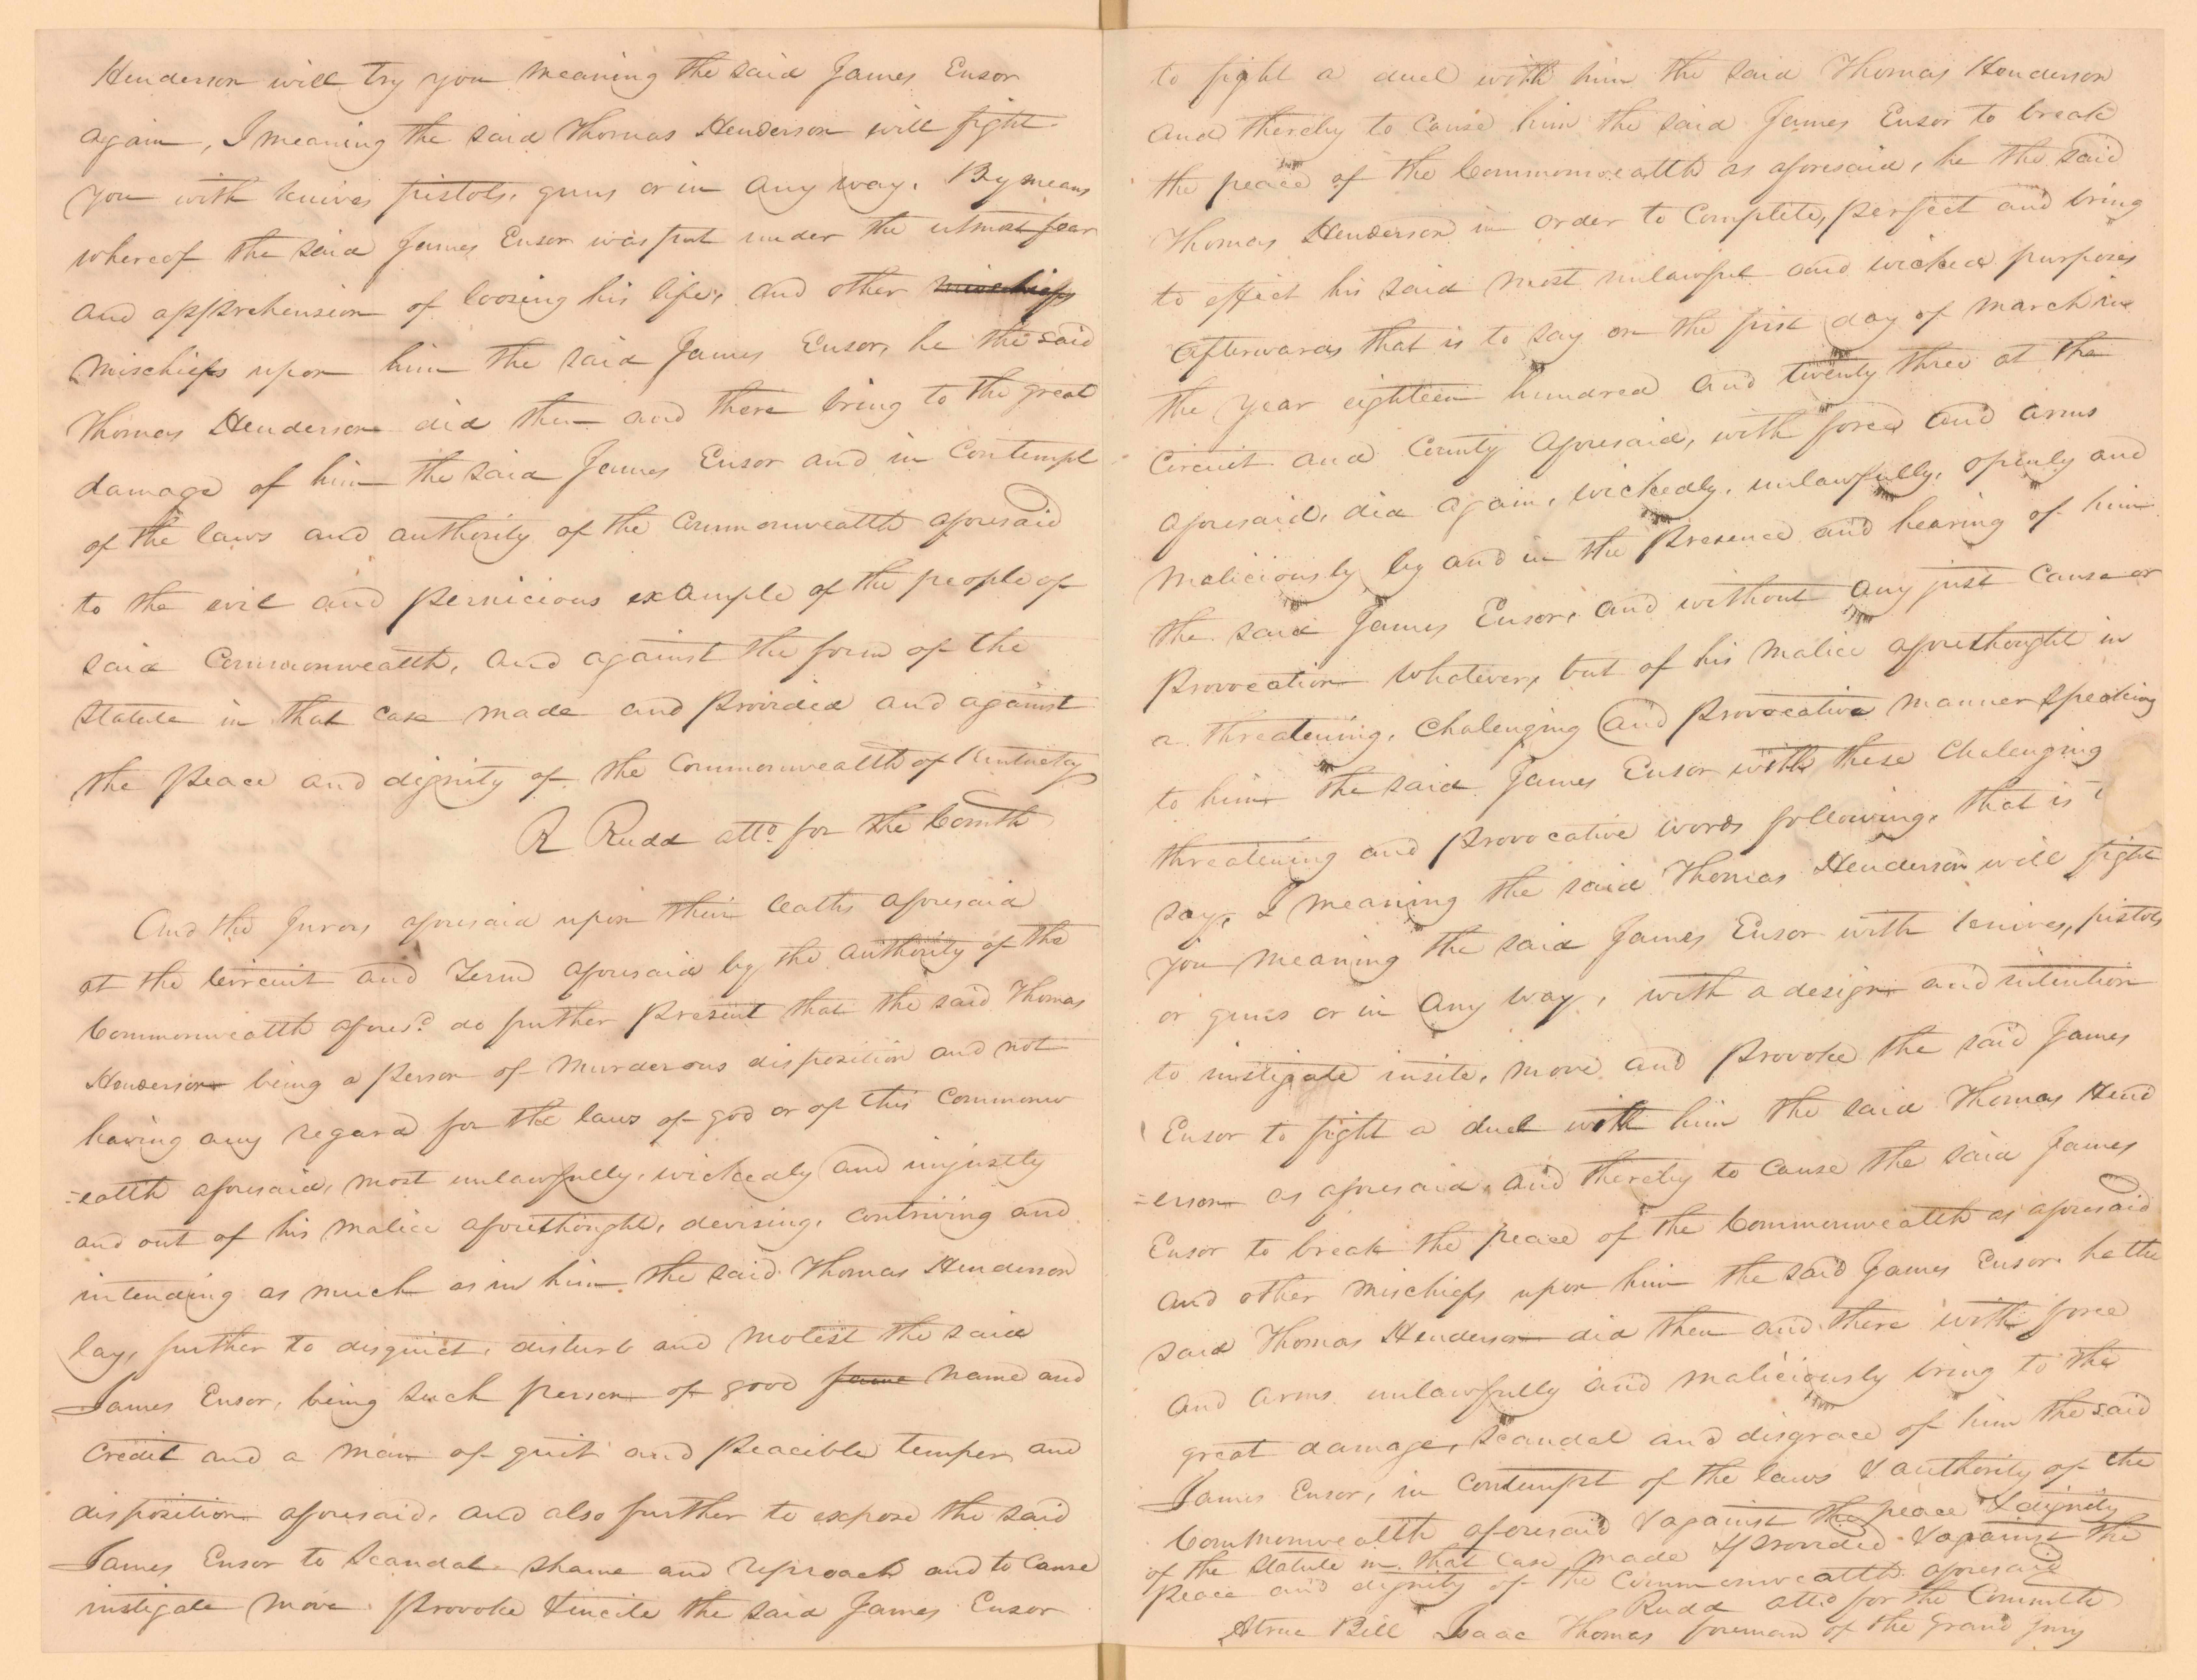 Henderson will try you meaning the said James Ensor
again, I meaning the said Thomas Henderson will fight
you with knives pistols, guns or in any way. By means
whereof the said James Ensor was put under the utmost fear
and apprehension of loosing his life, and other mischiefs
mischiefs upon him the said James Ensor, he the said
Thomas Henderson did then and there bring to the great
damage of him the said James Ensor and in Contempt
of the laws and authority of the Commonwealth aforesaid
to the evil and pernicious example of the people of
said Commonwealth, and against the form of the
Statute in that case made and provided and against
the peace and dignity of the Commonwealth of Kentucky
R Rudd atto. for the Comth
And the Jurors aforesaid upon their oaths aforesaid
at the Circuit and Term aforesaid by the authority of the
Commonwealth afores.d do further present that the said Thomas
Henderson being a person of murderous disposition and not
having any regard for the laws of god or of this Commonw
=ealth aforesaid, most unlawfully, wickedly and unjustly
and out of his malice aforethought, devising, contriving and
intending as much as in him the said Thomas Henderson
lay, further to disquiet, disturb and molest the said
James Ensor, being such person of good fame name and
credit and a man of quit and peacible temper and
disposition aforesaid, and also further to expose the said
James Ensor to Scandal shame and reproach and to cause
instigate move provoke & incite the said James Ensor
to fight a duel with him the said Thomas Henderson
and thereby to cause him the said James Ensor to break
the peace of the Commonwealth as aforesaid, he the said
Thomas Henderson in order to Complete, perfect and bring
to effect his said most unlawful and wicked purposes
afterwards that is to say on the first day of march in
the year eighteen hundred and twenty three at the
Circuit and County aforesaid, with force and arms
aforesaid, did again, wickedly, unlawfully, openly and
maliciously by and in the presence and hearing of him
the said James Ensor, and without any just cause or
provocation whatever, but of his malice aforethought in
a threatening, chalenging and provocative manner speaking
to him the said James Ensor with these chalenging
threatening and provocative words following, that is
say, I meaning the said Thomas Henderson will fight
you meaning the said James Ensor with knives, pistols
or guns or in any way, with a design and intention
to instigate insite, move and provoke the said James
Ensor to fight a duel with him the said Thomas Hend
=erson as aforesaid, and thereby to cause the said James
Ensor to break the peace of the Commonwealth as aforesaid
and other mischiefs upon him the said James Ensor he the
said Thomas Henderson did then and there with force
and arms unlawfully and maliciously bring to the
great damage, scandal and disgrace of him the said
James Ensor, in contempt of the laws & authority of the
Commonwealth aforesaid & against the peace & dignity
of the Statute in that case made & provided & against the
peace and dignity of the Commonwealth aforesaid
Rudd atto for the Commlth
A true Bill Isaac Thomas foreman of the grand Jury